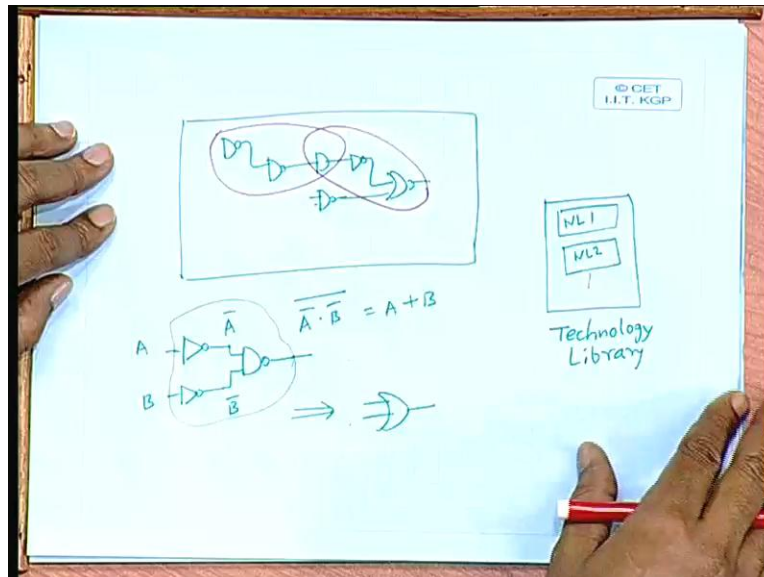 © CET
I.I.T. KGP
NL1
NL2
Technology
Library
A
A̅
B
B̅
\overline{A̅ · B̅} = A + B
⇒